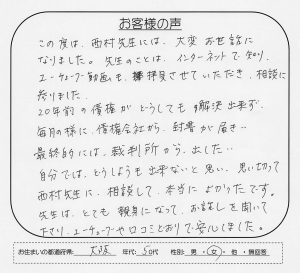 お客様の声
この度は、西村先生には、大変お世話に
なりました。先生のことは、インターネットで知り、
ユーチューブ動画も、拝見させていただき、相談に
参りました。
20年前の債権がどうしても解決出来ず、
毎月の様に、債権会社から、封書が届き…
最終的には、裁判所から、出した…
自分では、どうしようも出来ないと思い、思い切って
西村先生に、相談して、本当に よかったです。
先生は、とても 親身になって、お話しを聞いて
下さり、ユーチューブや口コミどおりで安心しました。
お住まいの都道府県: 大阪 年代: 50代 性別: 男・女・他・無回答